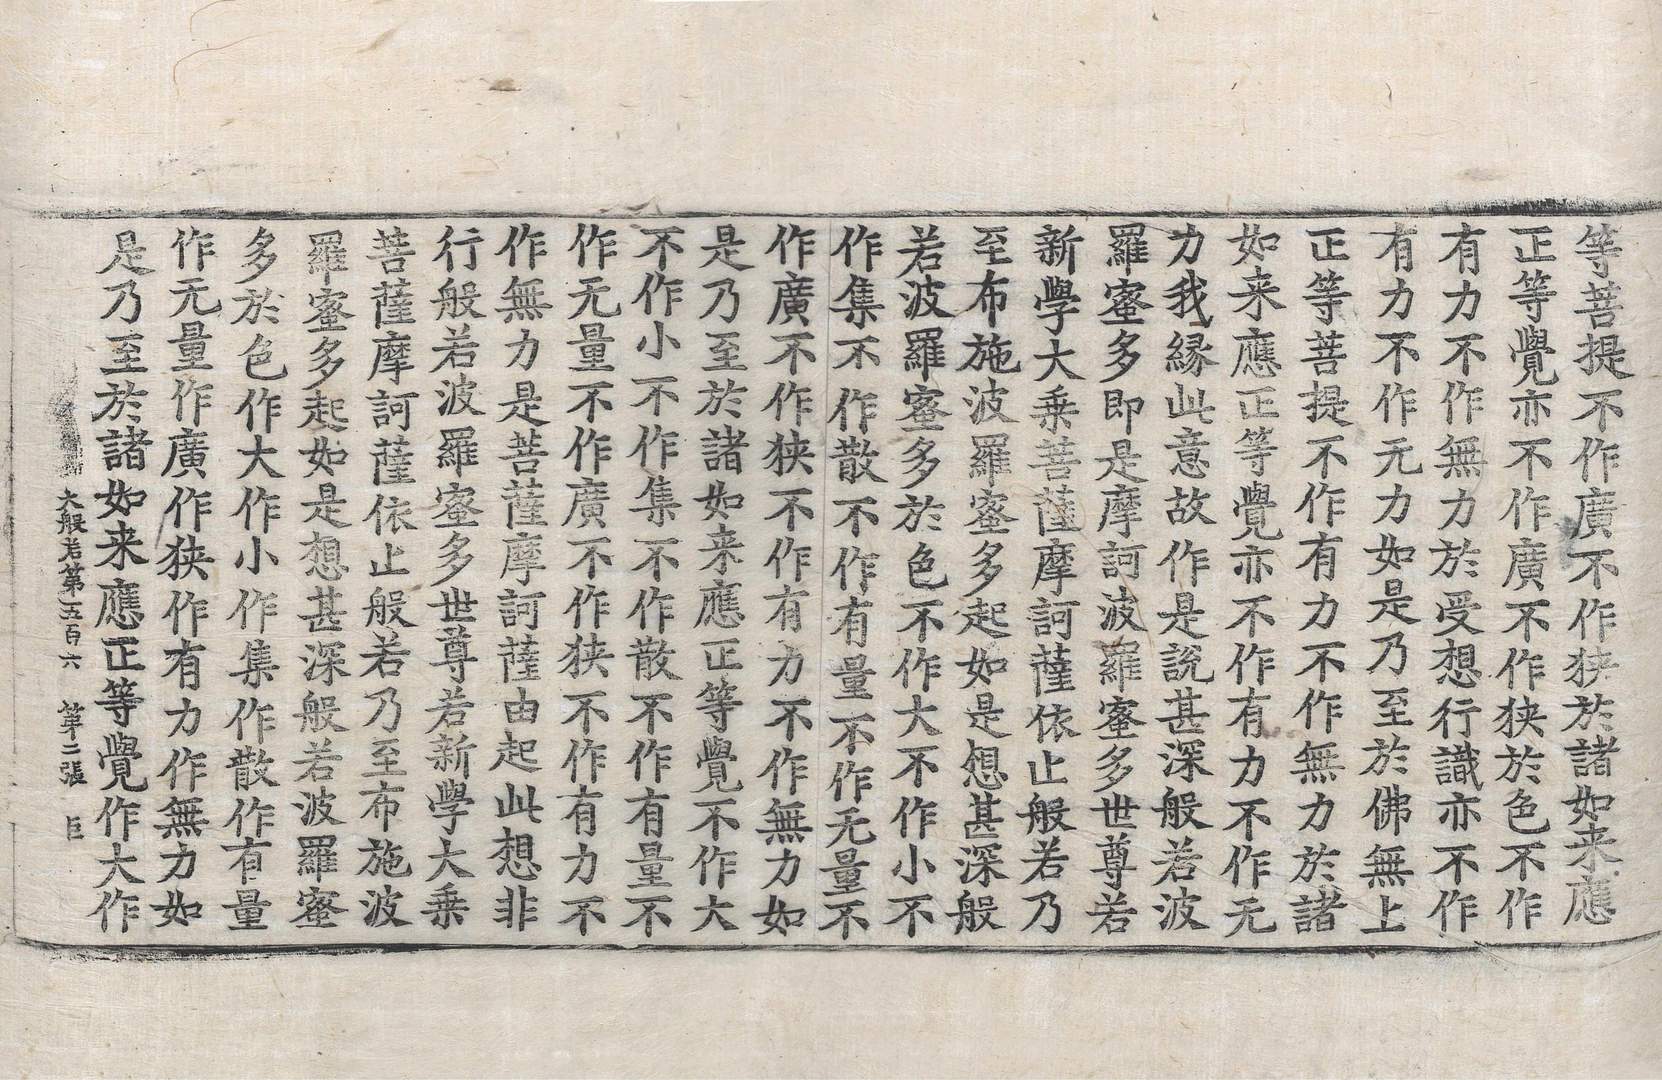 等菩提不作廣不作狹於諸如来應
正等覺亦不作廣不作狹於色不作
有力不作無力於受想行識亦不作
有力不作无力如是乃至於佛無上
正等菩提不作有力不作無力於諸
如来應正等覺亦不作有力不作无
力我緣此意故作是說甚深般若波
羅蜜多即是摩訶波羅蜜多世尊若
新學大乘菩薩摩訶薩依止般若乃
至布施波羅蜜多起如是想甚深般
若波羅蜜多於色不作大不作小不
作集不作散不作有量不作无量不
作廣不作狹不作有力不作無力如
是乃至於諸如来應正等覺不作大
不作小不作集不作散不作有量不
作无量不作廣不作狹不作有力不
作無力是菩薩摩訶薩由起此想非
行般若波羅蜜多世尊若新學大乘
菩薩摩訶薩依止般若乃至布施波
羅蜜多起如是想甚深般若波羅蜜
多於色作大作小作集作散作有量
作无量作廣作狹作有力作無力如
是乃至於諸如来應正等覺作大作
大般若第五百六 第二張 巨